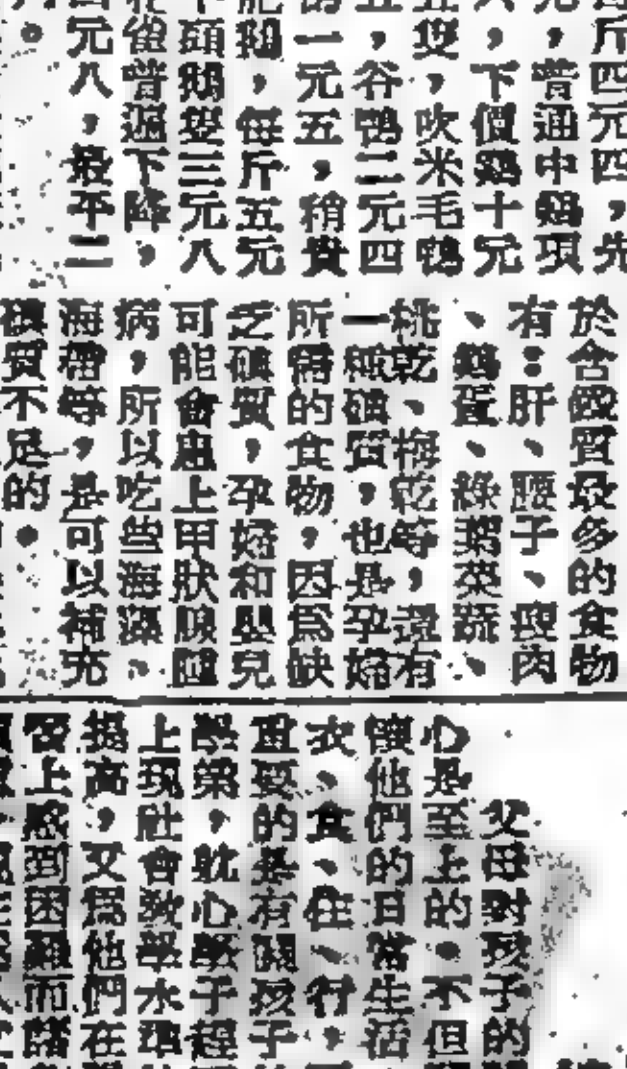 斤四元四，先
，普通中鷄項
，下價鷄十元
隻，吹米毛鴨
，谷鴨二元四
一元五，稍貴
肥鵝，每斤五元
頭鵝雙三元八
雀普遍下降，
元八，最平二
於含鐵質最多的食物
有：肝、腰子、瘦肉
、鷄蛋、綠葉菜蔬、
桃乾、梅乾等，還有
一種碘質，也是孕婦
所需的食物，因爲缺
乏碘質，孕婦和嬰兒
可能會患上甲狀腺腫
病，所以吃些海藻、
海帶等，是可以補充
碘質不足的。
父母對孩子的
心是至上的。不但
懷他們的日常生活
衣、食、住、行，
重要的是有關孩子
學業，耽心學子程
上現社會教學水準
提高，又爲他們在
上感到困難而諸